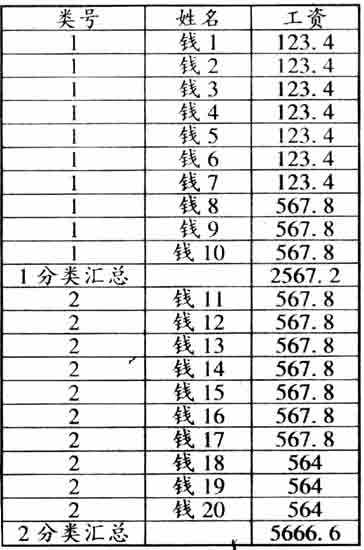 类号 姓名 工资
1 钱1 123.4
1 钱2 123.4
1 钱3 123.4
1 钱4 123.4
1 钱5 123.4
1 钱6 123.4
1 钱7 123.4
1 钱8 567.8
1 钱9 567.8
1 钱10 567.8
1分类汇总 2567.2
2 钱11 567.8
2 钱12 567.8
2 钱13 567.8
2 钱14 567.8
2 钱15 567.8
2 钱16 567.8
2 钱17 567.8
2 钱18 564
2 钱19 564
2 钱20 564
2分类汇总 5666.6